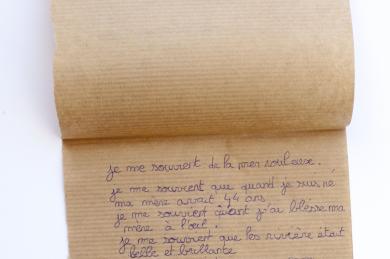 je me souvient de la mer
je me souvient que quand je suis né
ma mère avait 44 ans
je me souvient quant j'ai blesse ma
mère à l'oeil.
je me souvient que les rivière était
belle et brillante